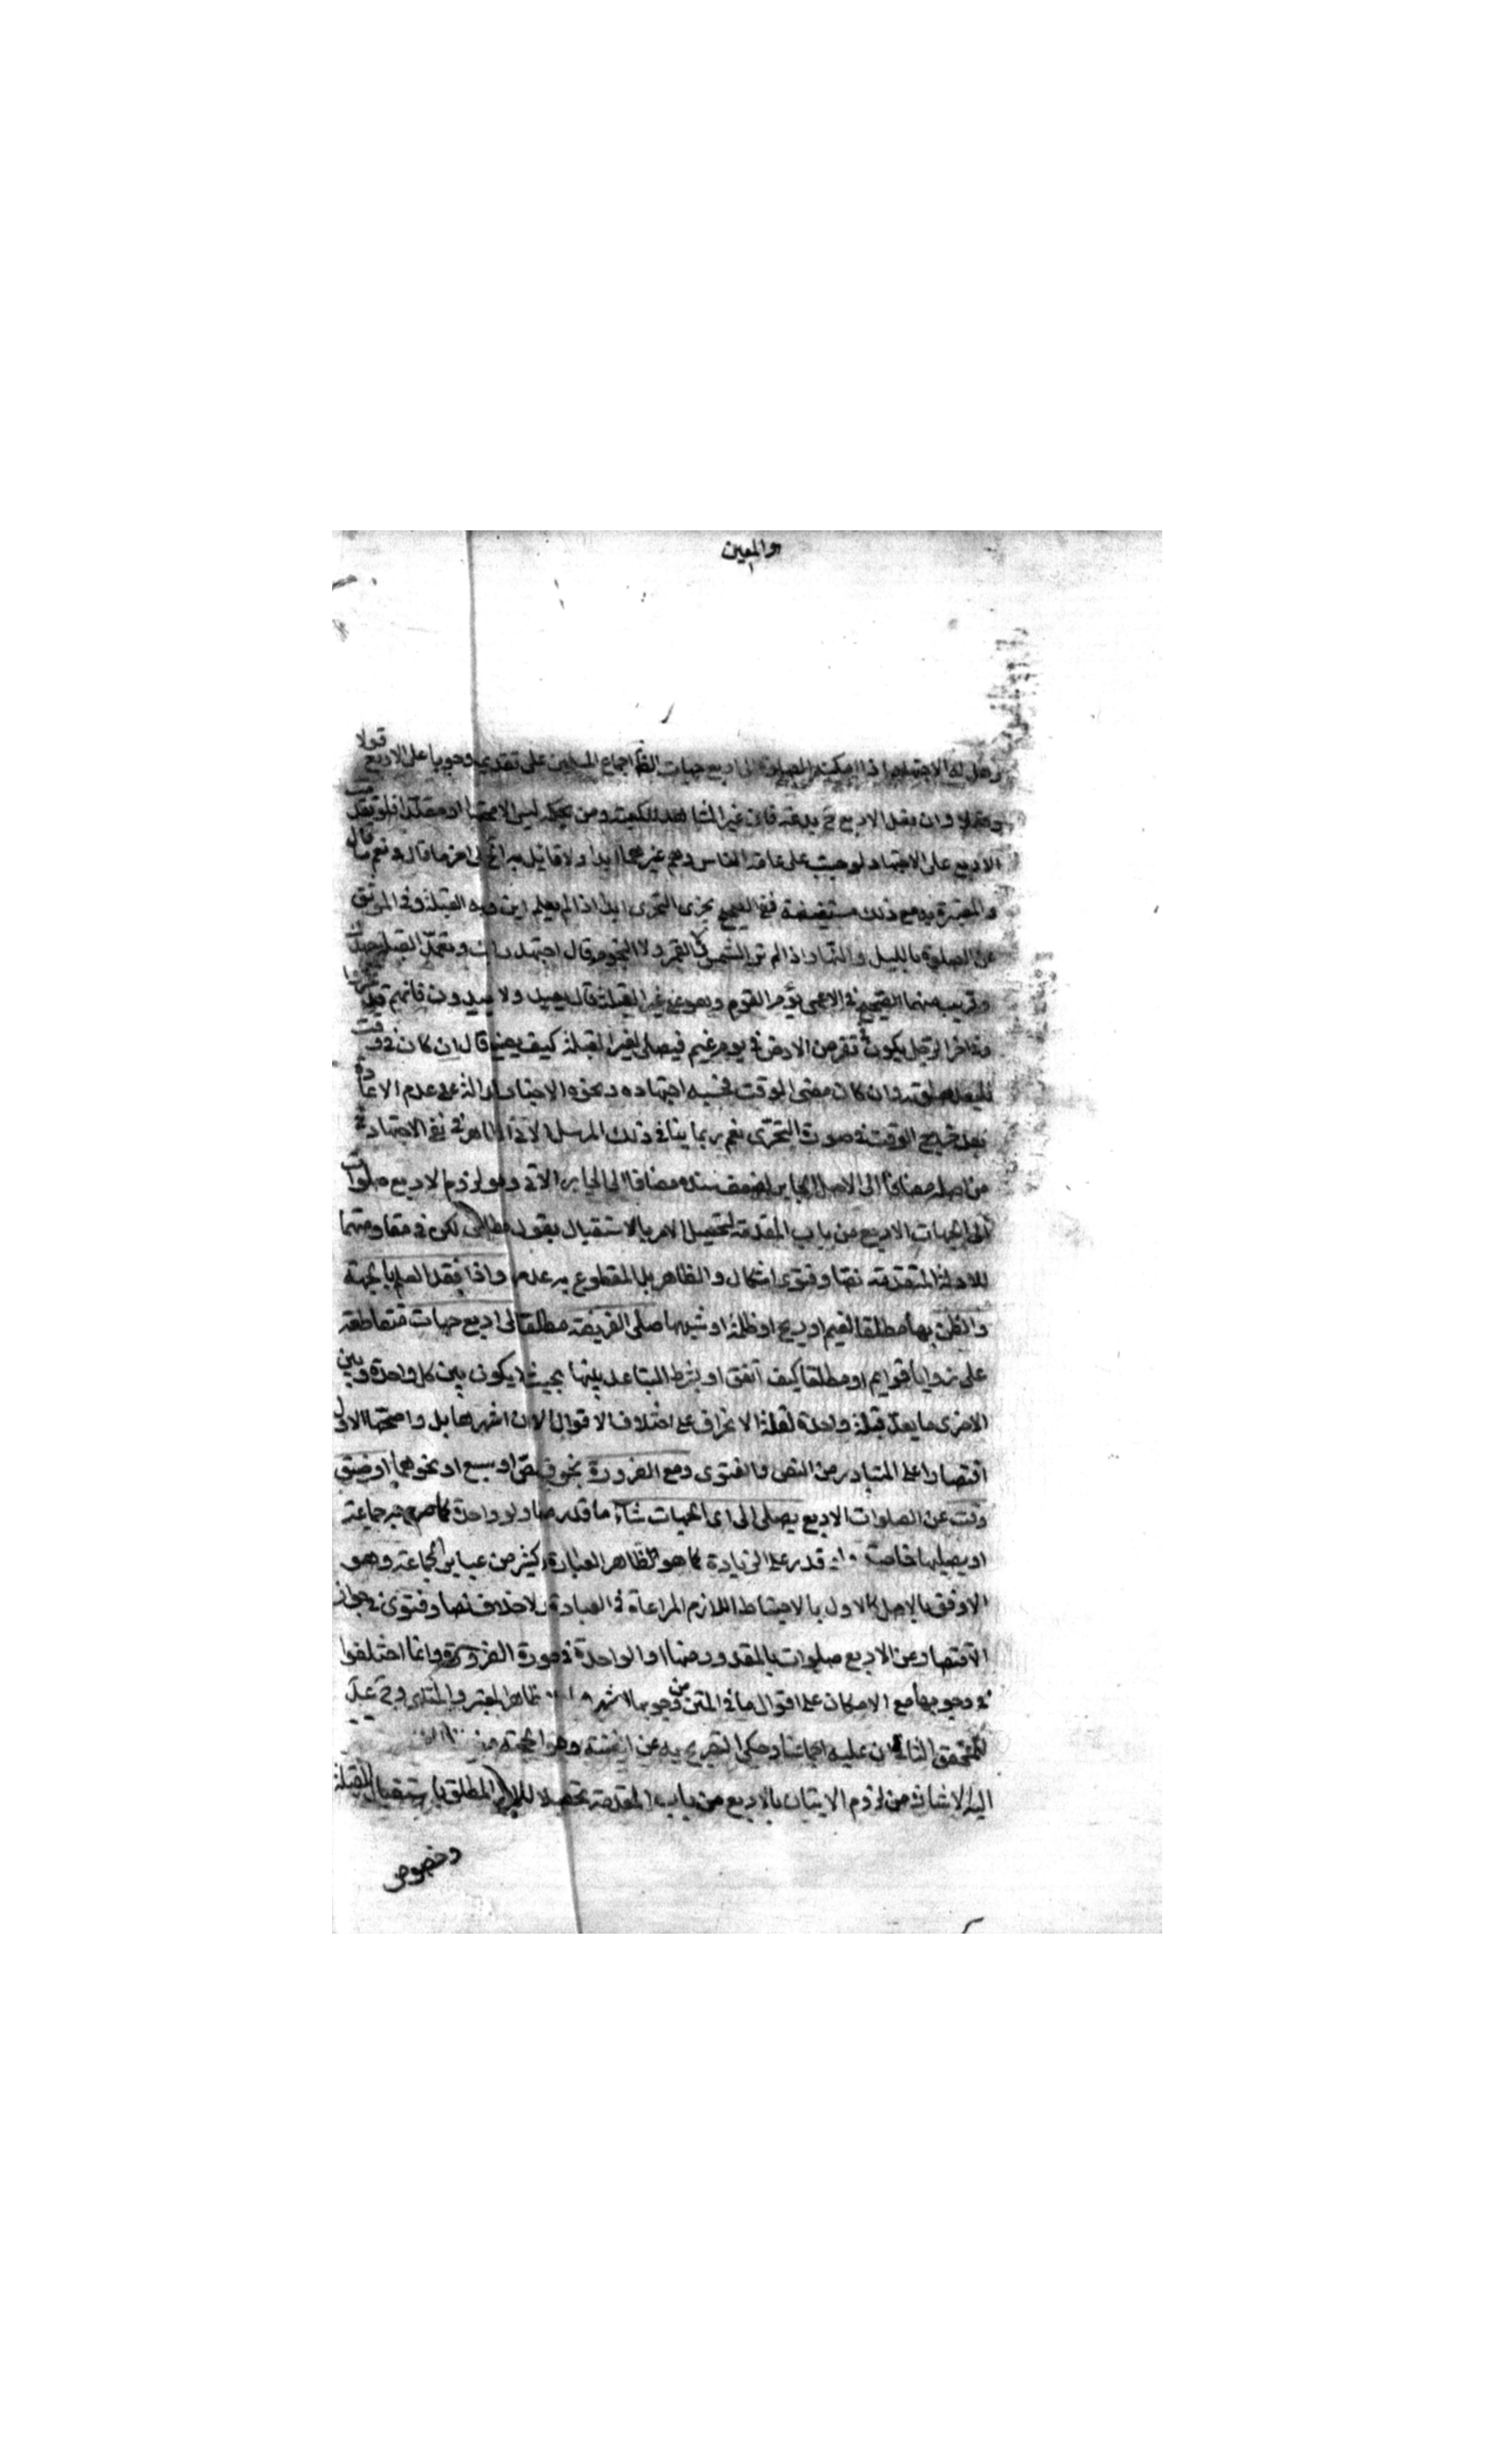 والمعين
وهل له الاجتهاد اذا امكنه الصلوة الى اربع جهات الظاهر اجماع المسلمين على تقديمه وجوبا على الاربع قولا
وفعلا وان فعل الاربع ح بدعة فان غير المشاهد للكعبة ومن بحكمه ليس الا مجتهدا او مقلدا فلو تقدمت
الاربع على الاجتهاد لوجبت على عامة الناس وهم غيرهما ابدا ولا قائل به الخ اخر ما قال ونعم ما قال
والمعتبرة به مع ذلك مستفيضة ففي الصحيح يجزى التحرى ابدا اذا لم يعلم اين وجه القبلة وفى الموثق
عن الصلوة بالليل والنهار اذا لم تر الشمس ولا القمر ولا النجوم قال اجتهد رايك وتعمد القبلة جهدك
وقريب منهما الصحيح فى الاعمى يؤم القوم وهو على غير القبلة قال يعيد ولا يعيدون فانهم قد تحروا
وفى اخر الرجل يكون فى قفر من الارض فى يوم غيم فيصلى لغير القبلة كيف يصنع قال ان كان فى وقت
فليعد صلوته وان كان مضى الوقت فحسبه اجتهاده ونحوه الاخبار الدالة على عدم الاعادة
بعد خروج الوقت فى صورة التحرى نعم ربما ينافى ذلك المرسل الاتى الظاهر فى نفى الاجتهاد
من اصله مضافا الى الاصل الجابر لضعف سنده مضافا الى الجابر الاتى وهو لزوم الاربع صلوات
الى الجهات الاربع من باب المقدمة لتحصيل الامر بالاستقبال بقول مطلق لكن فى مقاومتهما
للادلة المتقدمة نصا وفتوى اشكال والظاهر بل المقطوع به عدمه واذا فقد العلم بالجهة
والظن بها مطلقا لغيم او ريح او ظلمة او شبهها صلى الفريضة مطلقا الى اربع جهات متقاطعة
على زوايا قوايم او مطلقا كيف اتفق او بشرط التباعد بينها بحيث لا يكون بين كل واحدة وبين
الاخرى ما يعد قبلة واحدة لقلة الانحراف على اختلاف الاقوال الا ان اشهرها بل واصحها الاول
اقتصارا على المتبادر من النص والفتوى ومع الضرورة بخوف لص او سبع او نحوهما او ضيق
وقت عن الصلوات الاربع يصلى الى اى الجهات شاء ما قدر منها ولو واحدة كما صرح به جماعة
او يصليها خاصة وان قدر على الزيادة كما هو الظاهر العبارة وكثير من عباير الجماعة وهو
الاوفق بالاصل كالاول بالاحتياط اللازم المراعاة فى العبادة ولا خلاف نصا وفتوى فى جواز
الاقتصار عن الاربع صلوات بالمقدور منها او الواحدة فى صورة الضرورة وانما اختلفوا
فى وجوبها مع الامكان على اقوال ما فى المتن من وجوبها الاشهر ظاهر المعتبر والمنتهى وح عبد
للمحقق الثانى ان عليه اجماعنا وحكى التصريح به عن الغنية وهو الحجة
اليه الاشارة من لزوم الاتيان بالاربع من باب المقدمة تحصيلا للامر المطلق باستقبال القبلة
وخصوص